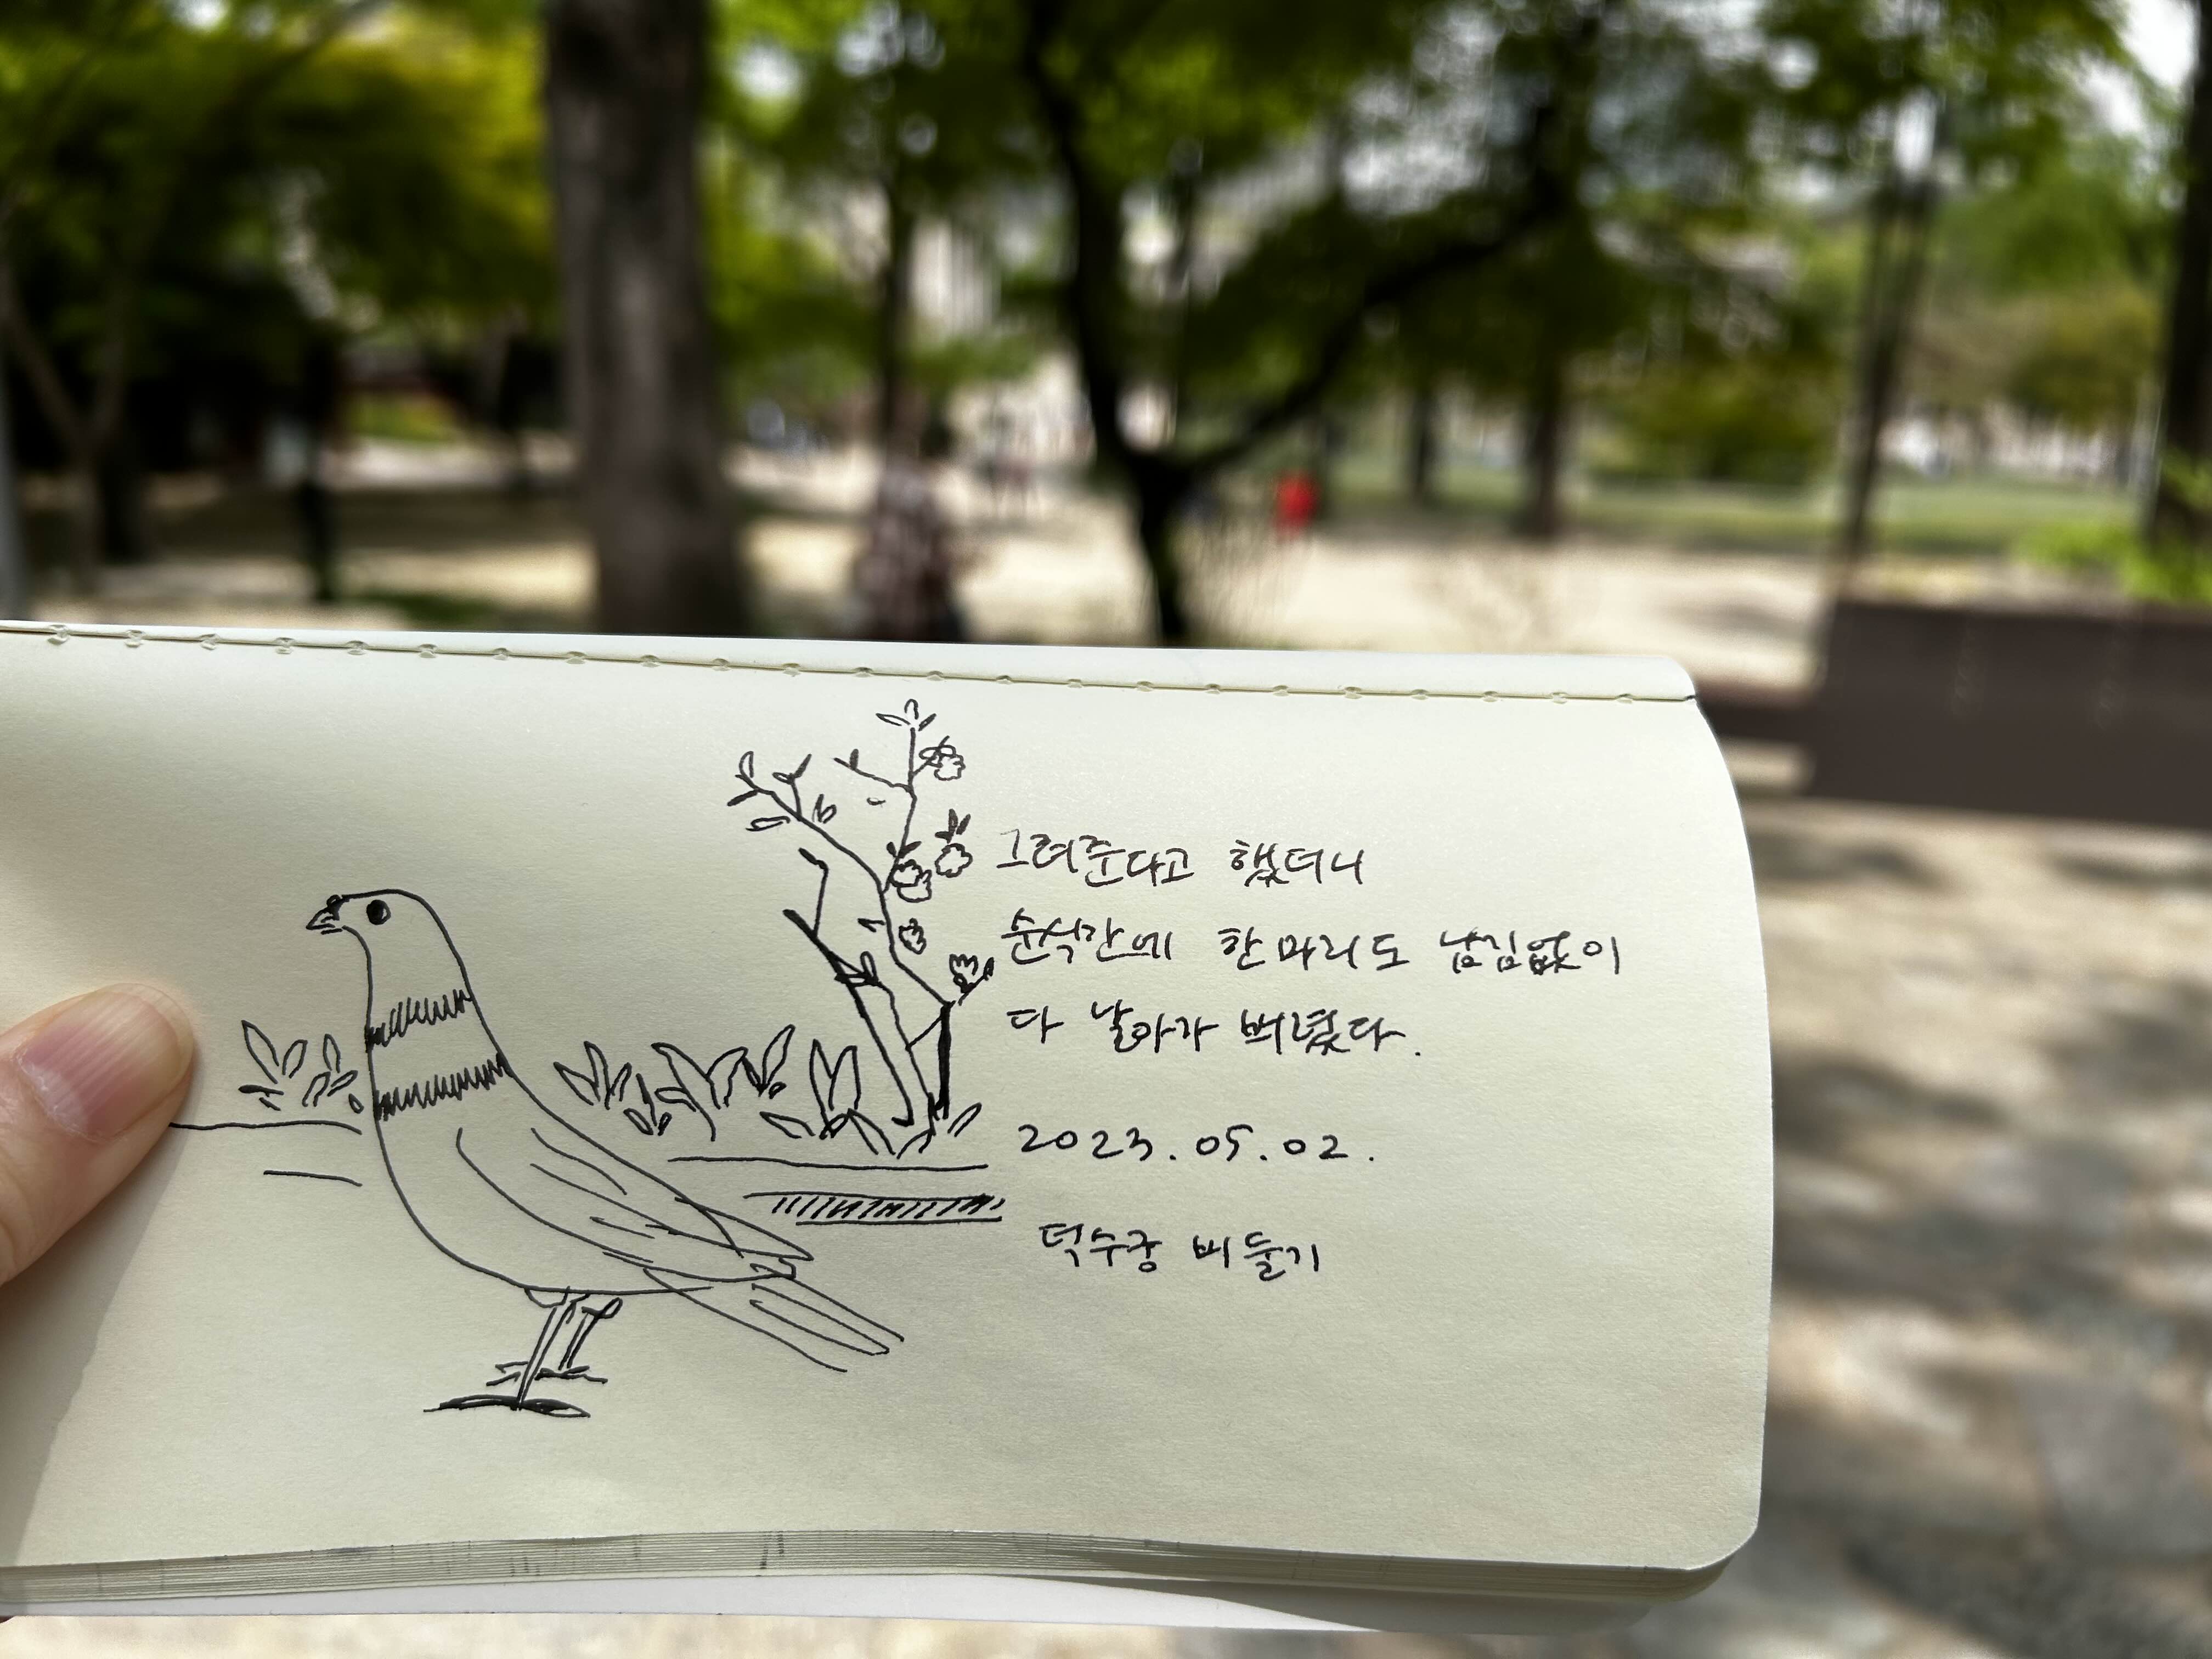 그려준다고 했더니
순식간에 한마리도 남김없이
다 날아가 버렸다.
2023.05.02.
덕수궁 비둘기